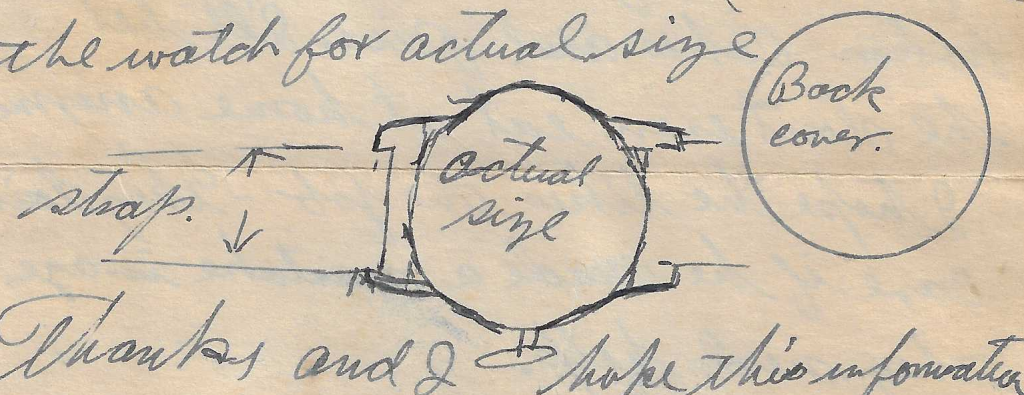 the watch for actual size
Back
cover.
actual
size
strap.
Thanks and I hope this information